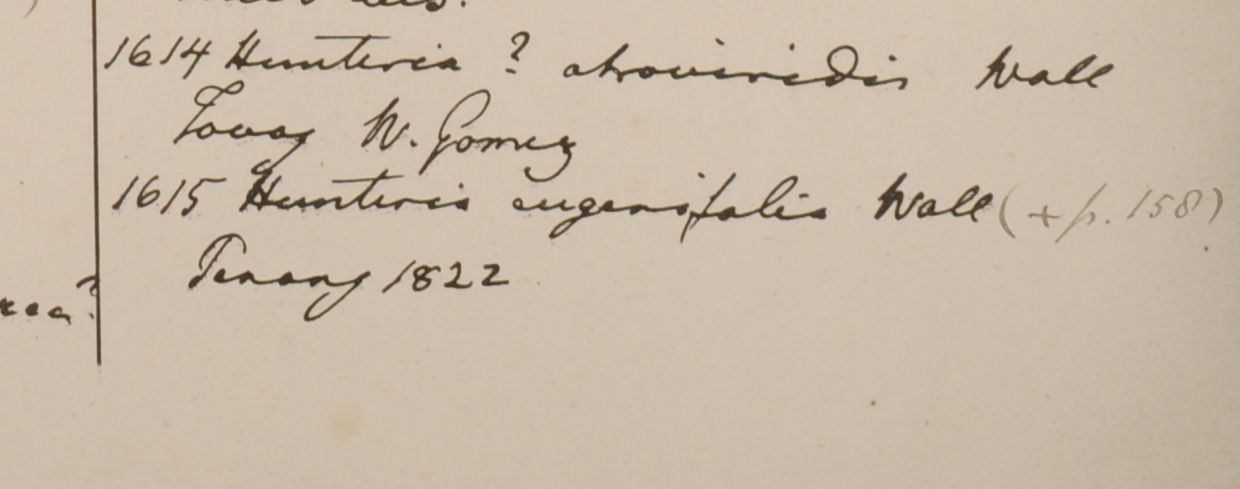 1614 Hunteria ? atroviridis Wall
Tavoy W. Gomez
1615 Hunteria eugenifolia Wall (+ p. 158)
Penang 1822